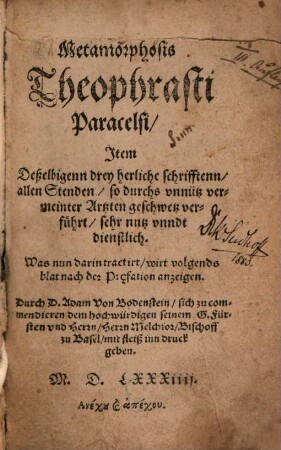 Metamorphosis
Theophrasti
Paracelsi/
Item
Deßelbigenn drey herliche schrifftenn/
allen Stenden/ so durchs vnnütz ver-
meinter Artzten geschwetz ver-
führt/ sehr nutz vnndt
dienstlich.
Was nun darin tractirt/ wirt volgends
blat nach der Præfation anzeigen.
Durch D. Adam Von Bodenstein/ sich zu com-
mendieren dem hochwürdigen seinem G. Für-
sten vnd Herrn/ Herrn Melchior/ Bischoff
zu Basel/ mit fleiß inn druck
geben.
M. D. LXXXiiij.
Ἀνέχου ἀπέχου.